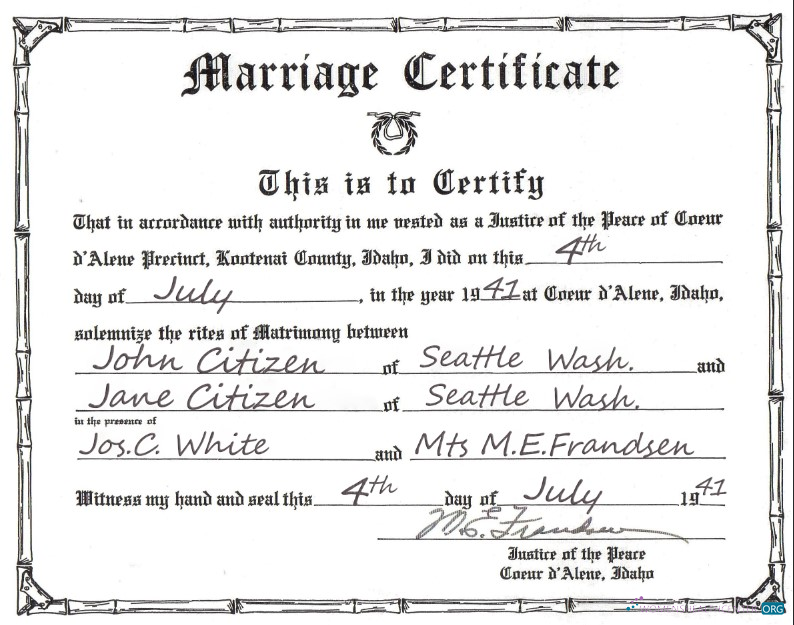 Marriage Certificate
This is to Certify
That in accordance with authority in me vested as a Justice of the Peace of Coeur
d'Alene Precinct, Kootenai County, Idaho, I did on this 4th
day of July, in the year 1941 at Coeur d'Alene, Idaho,
solemnize the rites of Matrimony between
John Citizen of Seattle Wash. and
Jane Citizen of Seattle Wash.
in the presence of
Jos.C. White and Mts M.E.Frandsen
Witness my hand and seal this 4th day of July 1941
M.E. Frandsen
Justice of the Peace
Coeur d'Alene, Idaho
ORG